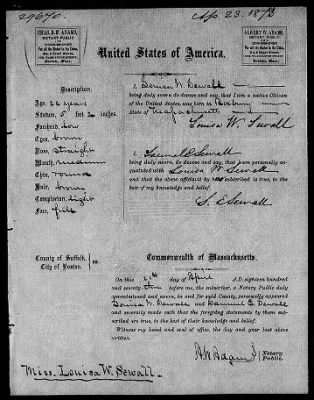 29670.
Ap. 23. 1873
CHAS. B. F. ADAMS,
NOTARY PUBLIC
COMMISSIONER
For all the States in the Union,
Boston, Mass.
ALBERT W. ADAMS,
NOTARY PUBLIC
COMMISSIONER
For all the States in the Union,
Boston, Mass.
United States of America.
Description.
Age, 26 years
Stature, 5 feet 2 inches.
Forehead, low
Eyes, brown
Nose, straight
Mouth, medium
Chin, round
Hair, brown
Complexion, light
Face, full
I, Louisa W. Sewall
being duly sworn, do depose and say, that I am a native Citizen
of the United States, was born in Roxbury
State of Massachusetts
Louisa W. Sewall
I, Samuel E. Sewall
being duly sworn, do depose and say, that I am personally
acquainted with Louisa W. Sewall
and that the above affidavit by her subscribed is true, to the
best of my knowledge and belief.
S. E. Sewall
County of Suffolk,
City of Boston.
ss.
Commonwealth of Massachusetts.
On this day of April A.D. eighteen hundred
and seventy-three before me, the subscriber, a Notary Public duly
commissioned and sworn, in and for said County, personally appeared
Louisa W. Sewall and Samuel E. Sewall
and severally made oath that the foregoing statements by them sub-
scribed are true, to the best of their knowledge and belief.
Witness my hand and seal of office, the day and year last above
written.
A W Adams
Notary
Public.
Miss. Louisa W. Sewall.